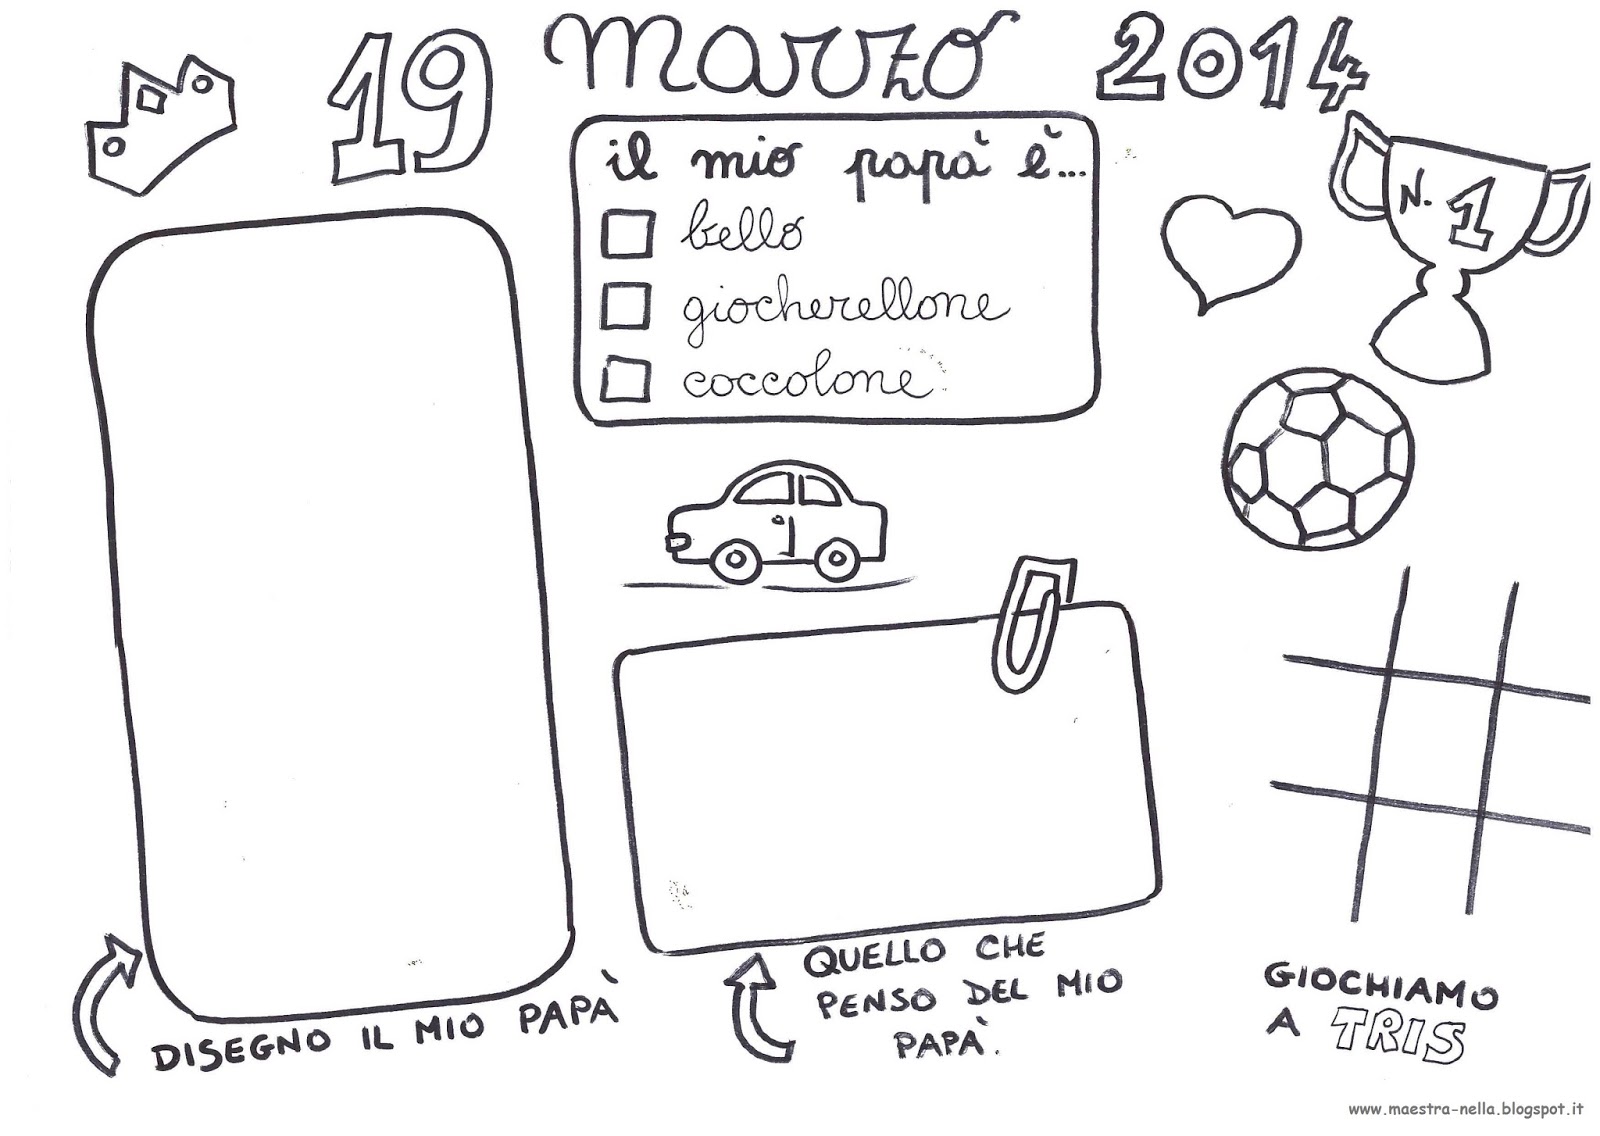 19 marzo 2014
il mio papà è...
bello
giocherellone
coccolone
N. 1
DISEGNO IL MIO PAPÀ
QUELLO CHE
PENSO DEL MIO
PAPÀ.
GIOCHIAMO
A TRIS
www.maestra-nella.blogspot.it